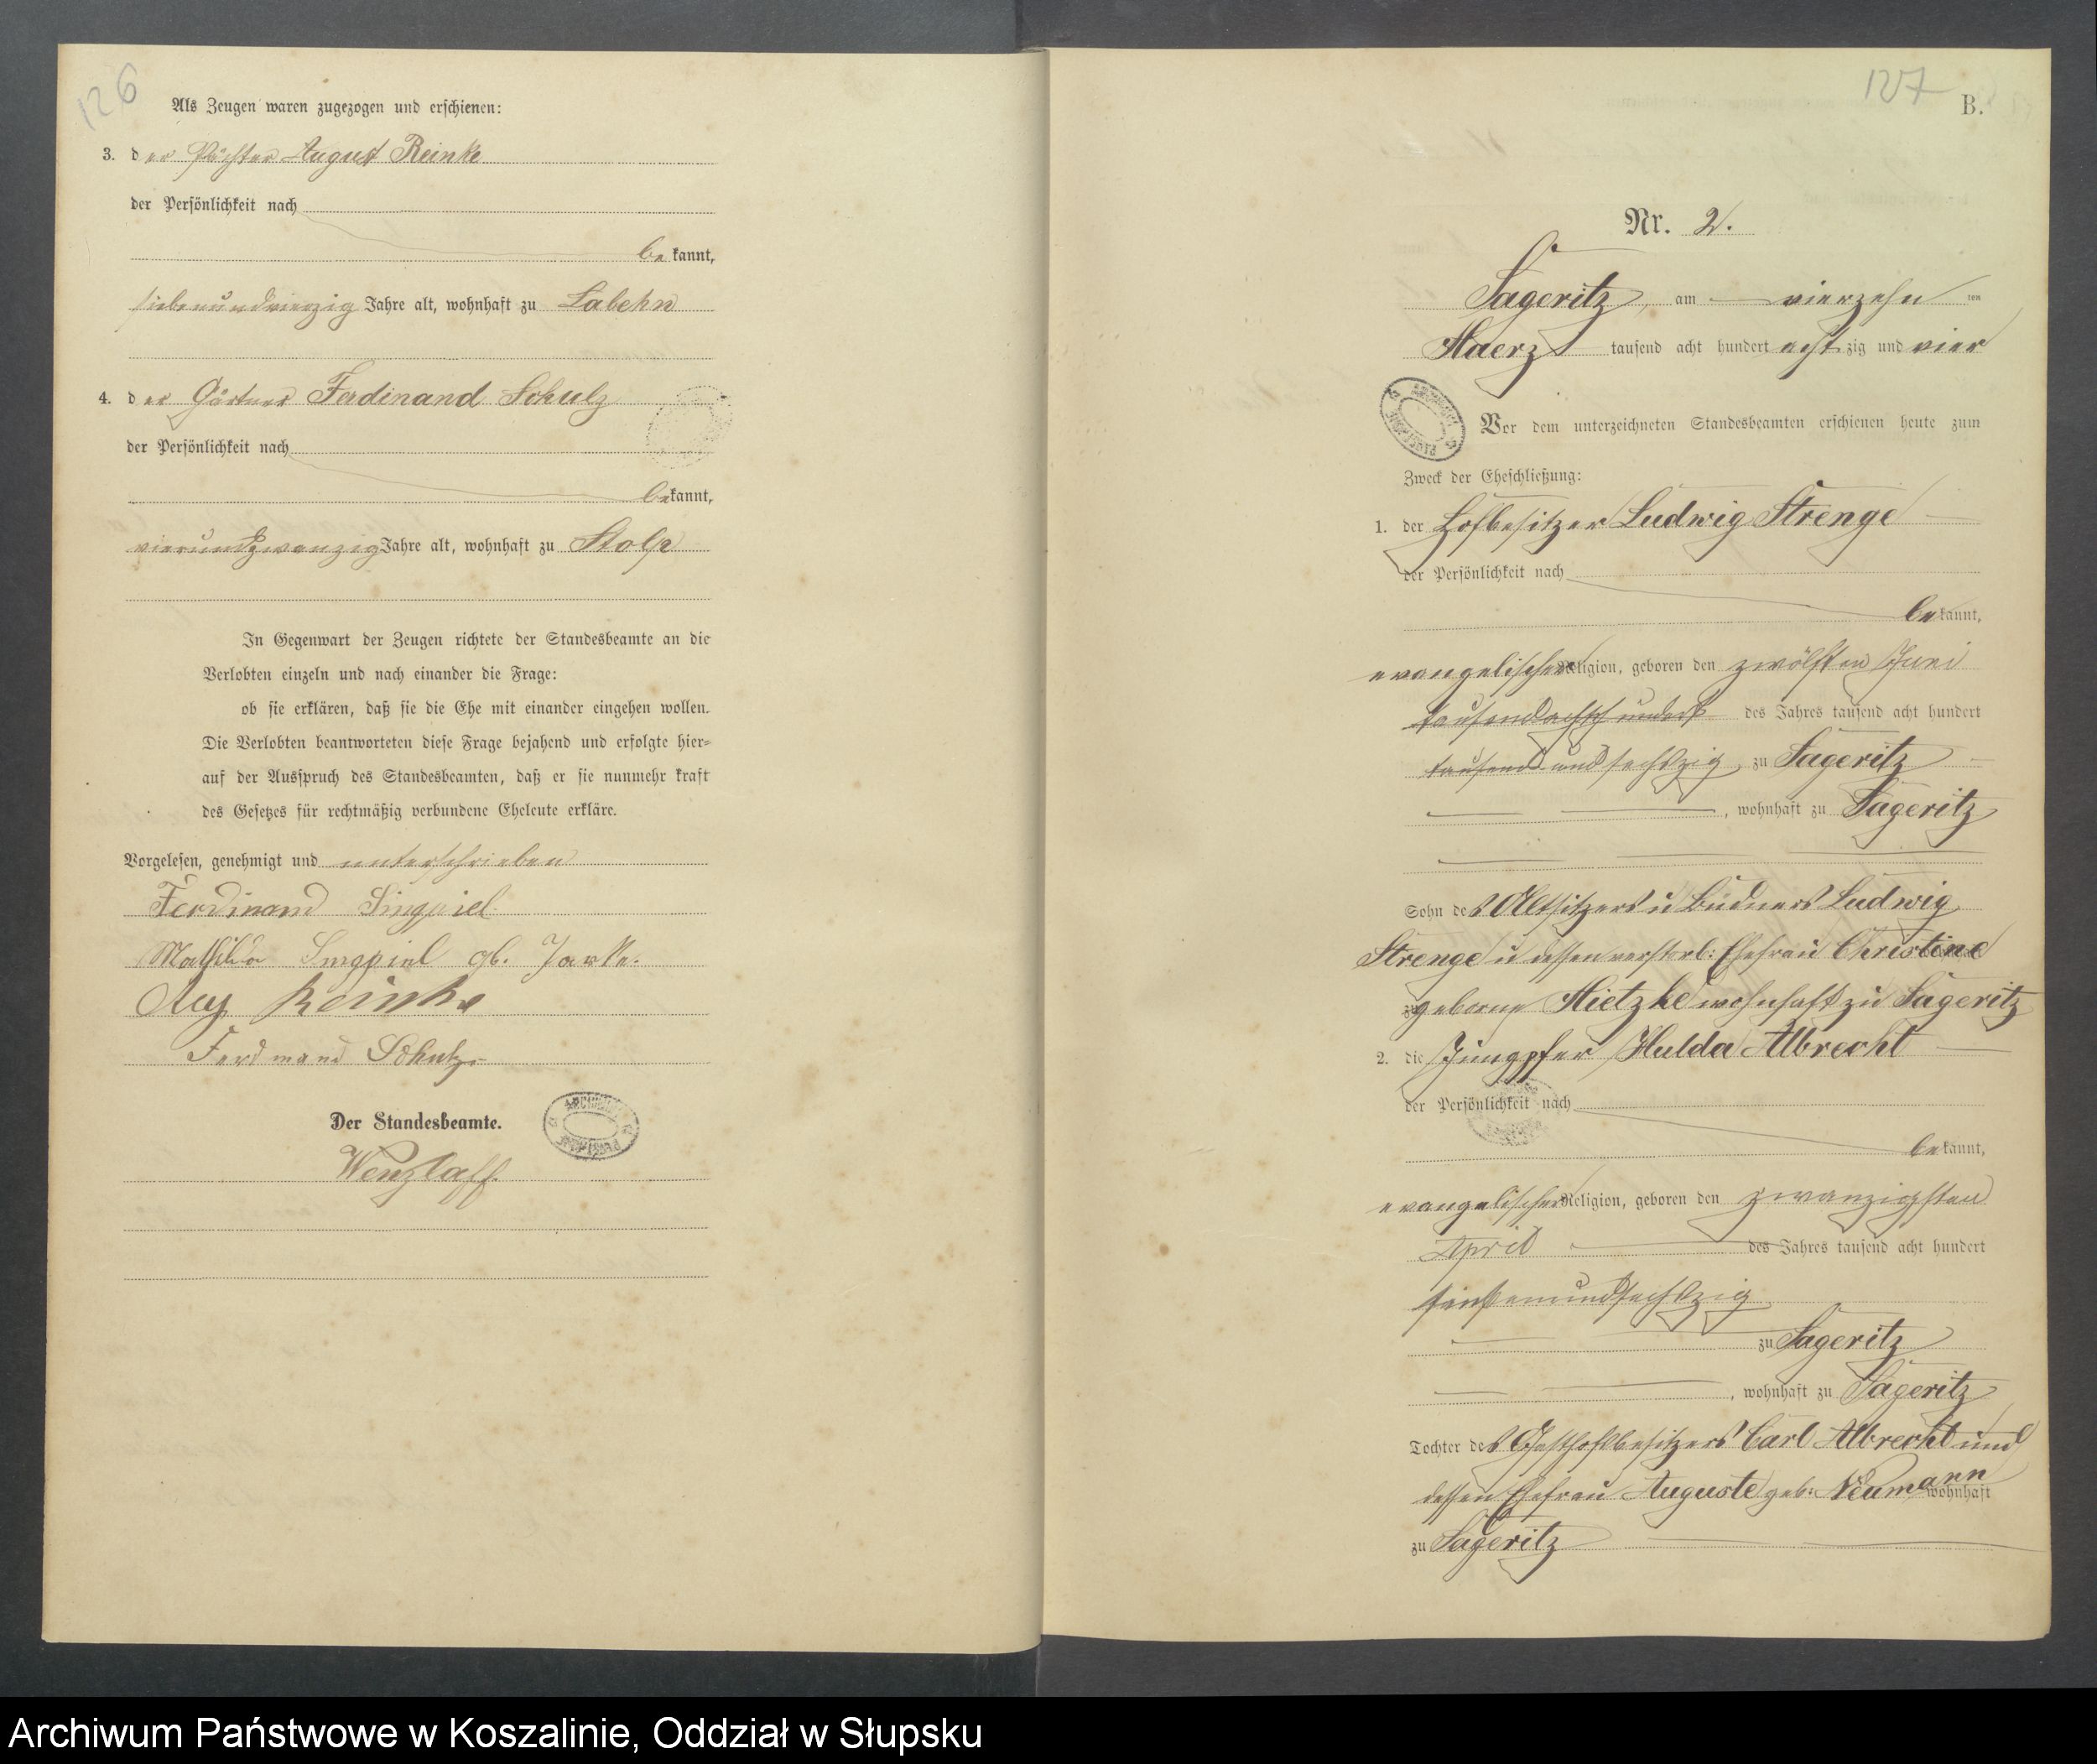 126
Als Zeugen waren zugezogen und erschienen:
3. der Pächter August Reinke
der Persönlichkeit nach
bekannt,
siebenundvierzig Jahre alt, wohnhaft zu Labehn
4. der Gärtner Ferdinand Schulz
der Persönlichkeit nach
bekannt,
vierundzwanzig Jahre alt, wohnhaft zu Stolp
In Gegenwart der Zeugen richtete der Standesbeamte an die
Verlobten einzeln und nach einander die Frage:
ob sie erklären, daß sie die Ehe mit einander eingehen wollen.
Die Verlobten beantworteten diese Frage bejahend und erfolgte hier=
auf der Ausspruch des Standesbeamten, daß er sie nunmehr kraft
des Gesetzes für rechtmäßig verbundene Eheleute erkläre.
Vorgelesen, genehmigt und unterschrieben
Ferdinand Singpiel
Mathilda Singpiel gb. Jarke.
Aug Reinke
Ferdinand Schulz
Der Standesbeamte.
Wenzlaff.
127
B.
Nr. 2.
Sageritz, am vierzehn ten
Maerz tausend acht hundert achtzig und vier
Vor dem unterzeichneten Standesbeamten erschienen heute zum
Zweck der Eheschließung:
1. der Hofbesitzer Ludwig Strenge
der Persönlichkeit nach
bekannt,
evangelischer Religion, geboren den zwölften Juni
tausendachthundert des Jahres tausend acht hundert
tausend und sechszig zu Sageritz
, wohnhaft zu Sageritz
Sohn des Altsitzers u Büdners Ludwig
Strenge u dessen verstorb: Ehefrau Christine
geborne Mietzke wohnhaft zu Sageritz
2. die Jungpfer Hulda Albrecht
der Persönlichkeit nach
bekannt,
evangelischer Religion, geboren den zwanzigsten
April des Jahres tausend acht hundert
sechszig
zu Sageritz
, wohnhaft zu Sageritz
Tochter des Gasthofbesitzers Carl Albrecht und
dessen Ehefrau Auguste geb: Neumann wohnhaft
zu Sageritz
Archiwum Państwowe w Koszalinie, Oddział w Słupsku